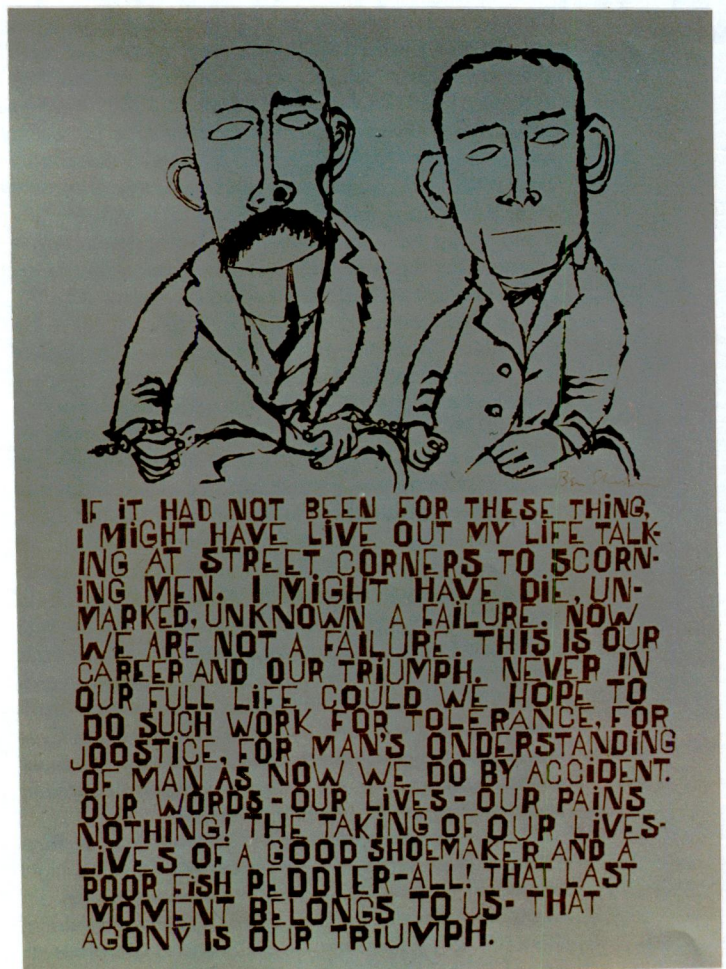 Ben Shahn
IF iT HAD NOT BEEN FOR THESE THING,
I MiGHT HAVE LiVE OUT MY LiFE TALK-
ING AT STREET CORNERS TO SCORN-
iNG MEN. I MiGHT HAVE DiE, UN-
MARKED, UNKNOWN A FAiLURE. NOW
WE ARE NOT A FAiLURE. THIS IS OUR
CAREER AND OUR TRiUMPH. NEVER IN
OUR FULL LiFE COULD WE HOPE TO
DO SUCH WORK FOR TOLERANCE, FOR
JOOSTICE, FOR MAN'S ONDERSTANDiNG
OF MAN AS NOW WE DO BY ACCiDENT.
OUR WORDS - OUR LiVES - OUR PAINS
NOTHiNG! THE TAKiNG OF OUR LiVES-
LiVES OF A GOOD SHOEMAKER AND A
POOR FiSH PEDDLER-ALL! THAT LAST
MOMENT BELONGS TO US- THAT
AGONY iS OUR TRiUMPH.